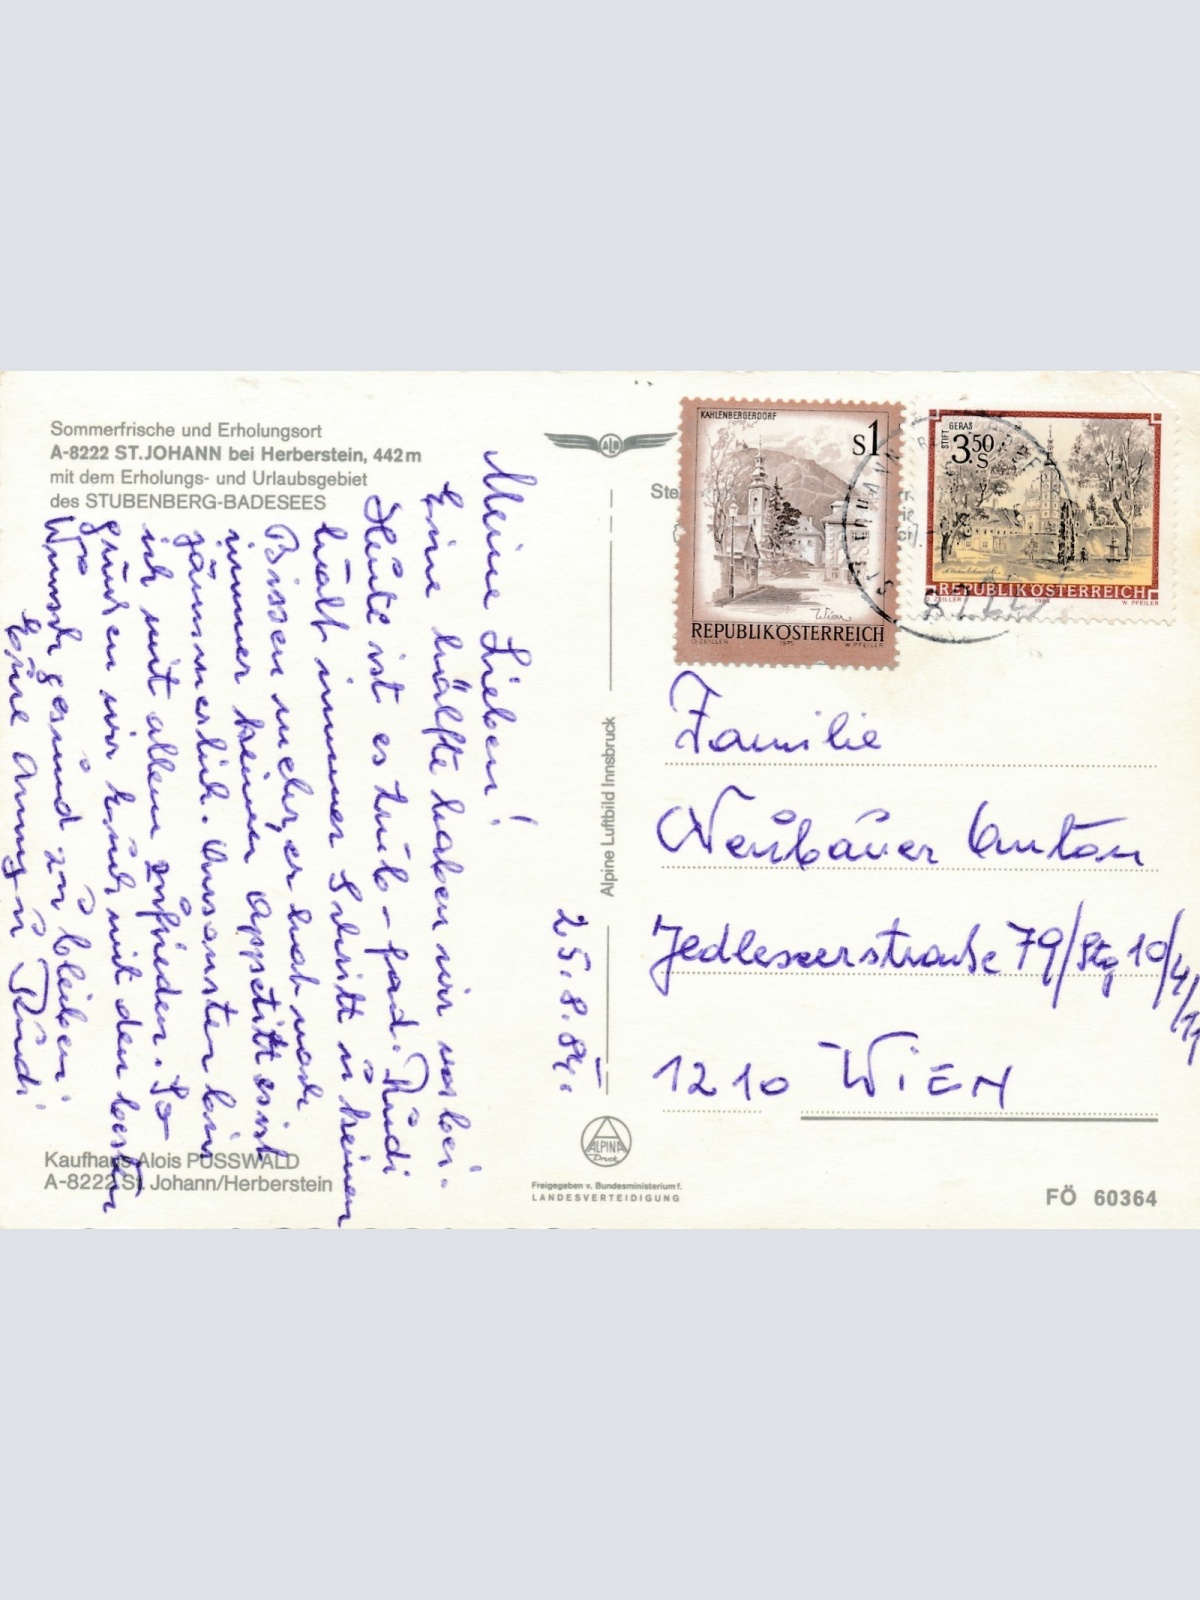 Sommerfrische und Erholungsort
A-8222 ST. JOHANN bei Herberstein, 442m
mit dem Erholungs- und Urlaubsgebiet
des STUBENBERG-BADESEES
Meine Lieben!
Eine hälfte haben wir vorbei.
Heute ist es trüb – fad. Rudi
huscht immer Schritt u keinen
Bissen mehr, er hat noch
immer keinen Appetit es ist
jämmerlich. Ansonsten bin
ich mit allem zufrieden. So
grüßen wir Euch mit den besten
Wunsch gesund zu bleiben
Eure Anny u Rudi
25.8.84.
Kaufhaus Alois PUSSWALD
A-8222 St. Johann/Herberstein
Alpine Luftbild Innsbruck
ALPINA
Druck
Freigegeben v. Bundesministerium f.
LANDESVERTEIDIGUNG
KAHLENBERGERDORF
S1
Wien
REPUBLIK ÖSTERREICH
O. ZEILLER 1975 W. PFEILER
STIFT GERAS
3.50 S
REPUBLIK ÖSTERREICH
O. ZEILLER 1984 W. PFEILER
Familie
Neubauer Anton
Jedleseerstraße 79/Stg 10/4/11
1210 WIEN
FÖ 60364